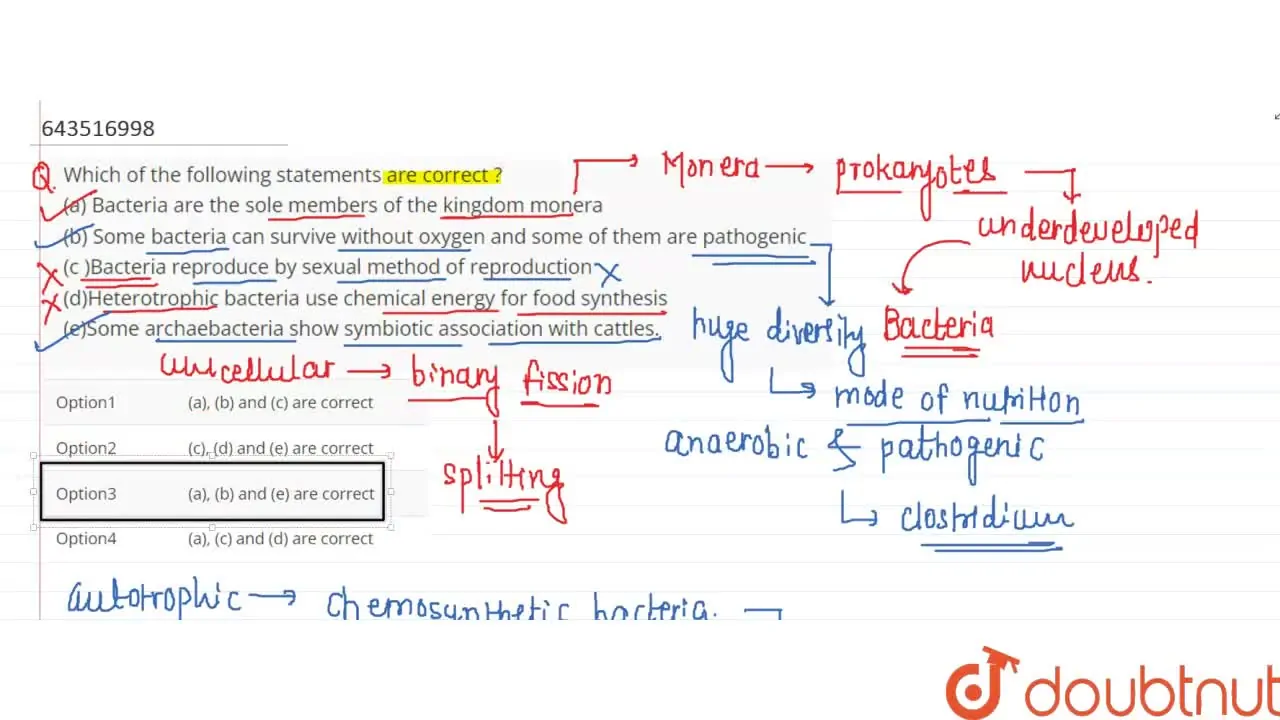 643516998
Q. Which of the following statements are correct ?
(a) Bacteria are the sole members of the kingdom monera
(b) Some bacteria can survive without oxygen and some of them are pathogenic
(c )Bacteria reproduce by sexual method of reproduction
(d)Heterotrophic bacteria use chemical energy for food synthesis
(e)Some archaebacteria show symbiotic association with cattles.
Monera → prokaryotes
underdeveloped
nucleus.
Bacteria
huge diversity
mode of nutrition
anaerobic & pathogenic
clostridium
unicellular → binary fission
splitting
Option1 (a), (b) and (c) are correct
Option2 (c), (d) and (e) are correct
Option3 (a), (b) and (e) are correct
Option4 (a), (c) and (d) are correct
autotrophic → chemosynthetic bacteria.
doubtnut